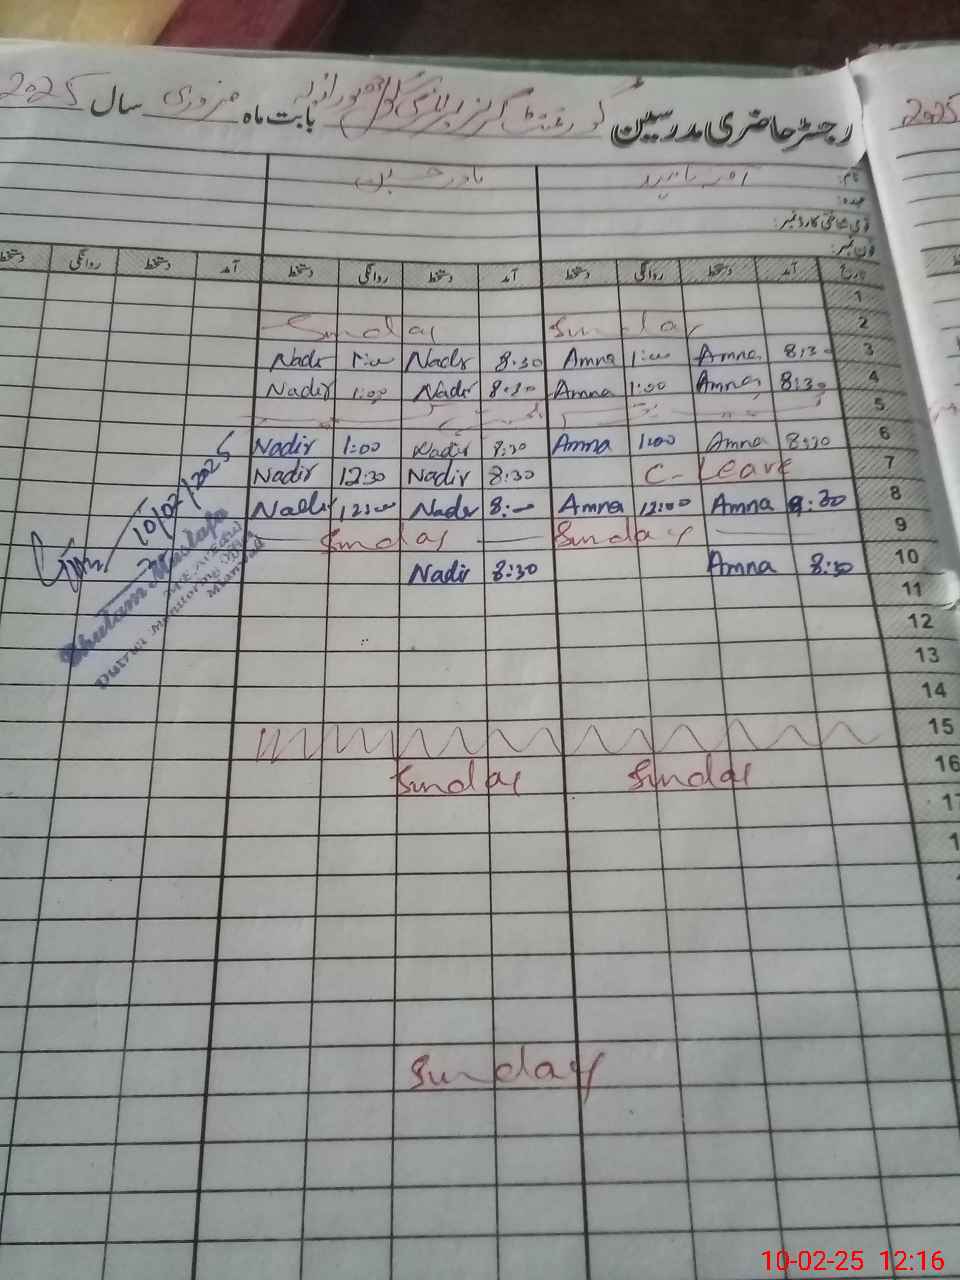 رجسٹر حاضری مدرسین گورنمنٹ گرلز پرائمری بابت ماہ فروری سال 2025
2025
نام: نادر حسین
عہدہ:
قومی شناختی کارڈ نمبر:
فون نمبر:
تاریخ آمد دستخط روانگی دستخط آمد دستخط روانگی دستخط آمد دستخط روانگی
1
2 Sunday Sunday
3 8:30 Amna 1:00 Amna 8:30 Nadir 1:00 Nadir
4 8:30 Amna 1:00 Amna 8:30 Nadir 1:00 Nadir
5
6 8:30 Amna 1:00 Amna 8:30 Nadir 1:00 Nadir
7 C-Leave 8:30 Nadir 12:30 Nadir
8 8:30 Amna 12:00 Amna 8:00 Nadir 12:00 Nadir
9 Sunday Sunday
10 8:30 Amna 8:30 Nadir
11
12
13
14
15
16 Sunday Sunday
17
Sunday
10/02/2025
Ghulam Mustafa
District Monitoring
10-02-25 12:16